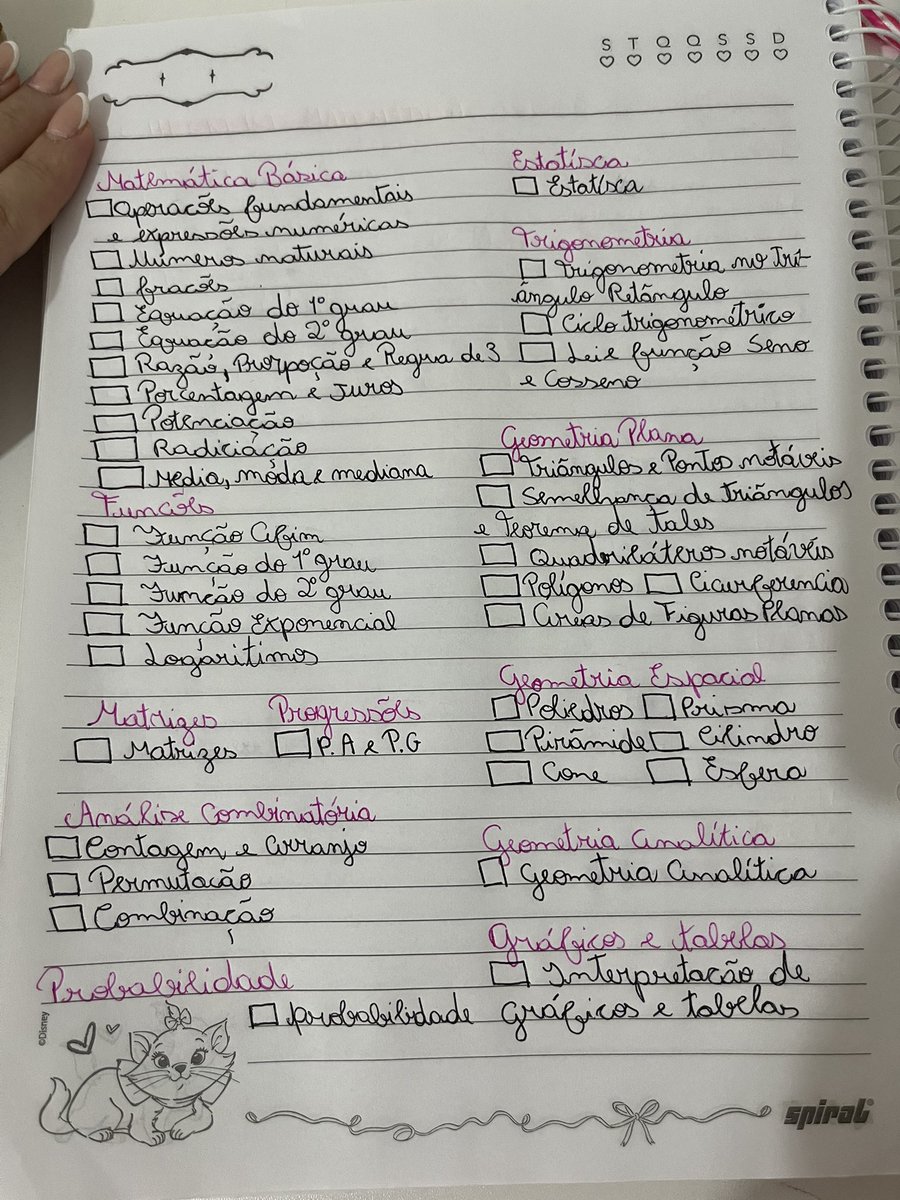 S T Q Q S S D
Matemática Básica
Operacões fundamentais
e expressões numéricas
Números naturais
fracões
Equação do 1º grau
Equação do 2º grau
Razão, Prorpoção e Regra de 3
Porcentagem e Juros
Potenciação
Radiciação
Média, móda e mediana
Funcões
Função Afim
Função do 1º grau
Função do 2º grau
Função Exponencial
Logáritimos
Matrizes
Matrizes
Progressões
P.A e P.G
Análise Combinatória
Contagem e arranjo
Permutacão
Combinação
Probabilidade
probabilidade
Estatísca
Estatísca
Trigonometria
Trigonometria no Tri-
ângulo Retângulo
Ciclo trigonométrico
Lei e função Seno
e Cosseno
Geometria Plana
Triângulos e Pontos notáveis
Semelhança de Triângulos
e Teorema de tales
Quadriláteros notáveis
Polígonos Cicurferencia
Areas de Figuras Planas
Geometria Espacial
Poliedros Prisma
Pirâmide Cilindro
Cone Esfera
Geometria analítica
Geometria analítica
Gráficos e tabelas
Interpretacão de
gráficos e tabelas
©Disney
spiral